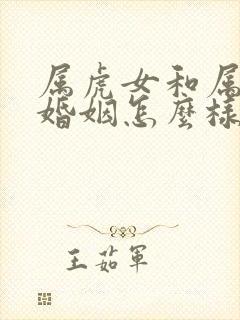 属虎女和属
婚姻怎麼樣
王茹軍